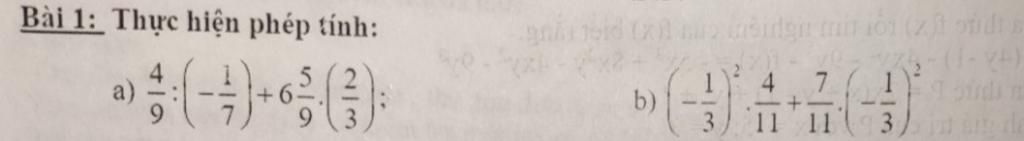 Bài 1: Thực hiện phép tính:
a) 4/9 : (-1/7) + 6 5/9 . (2/3); b) (-1/3)² . 4/11 + 7/11 . (-1/3)²